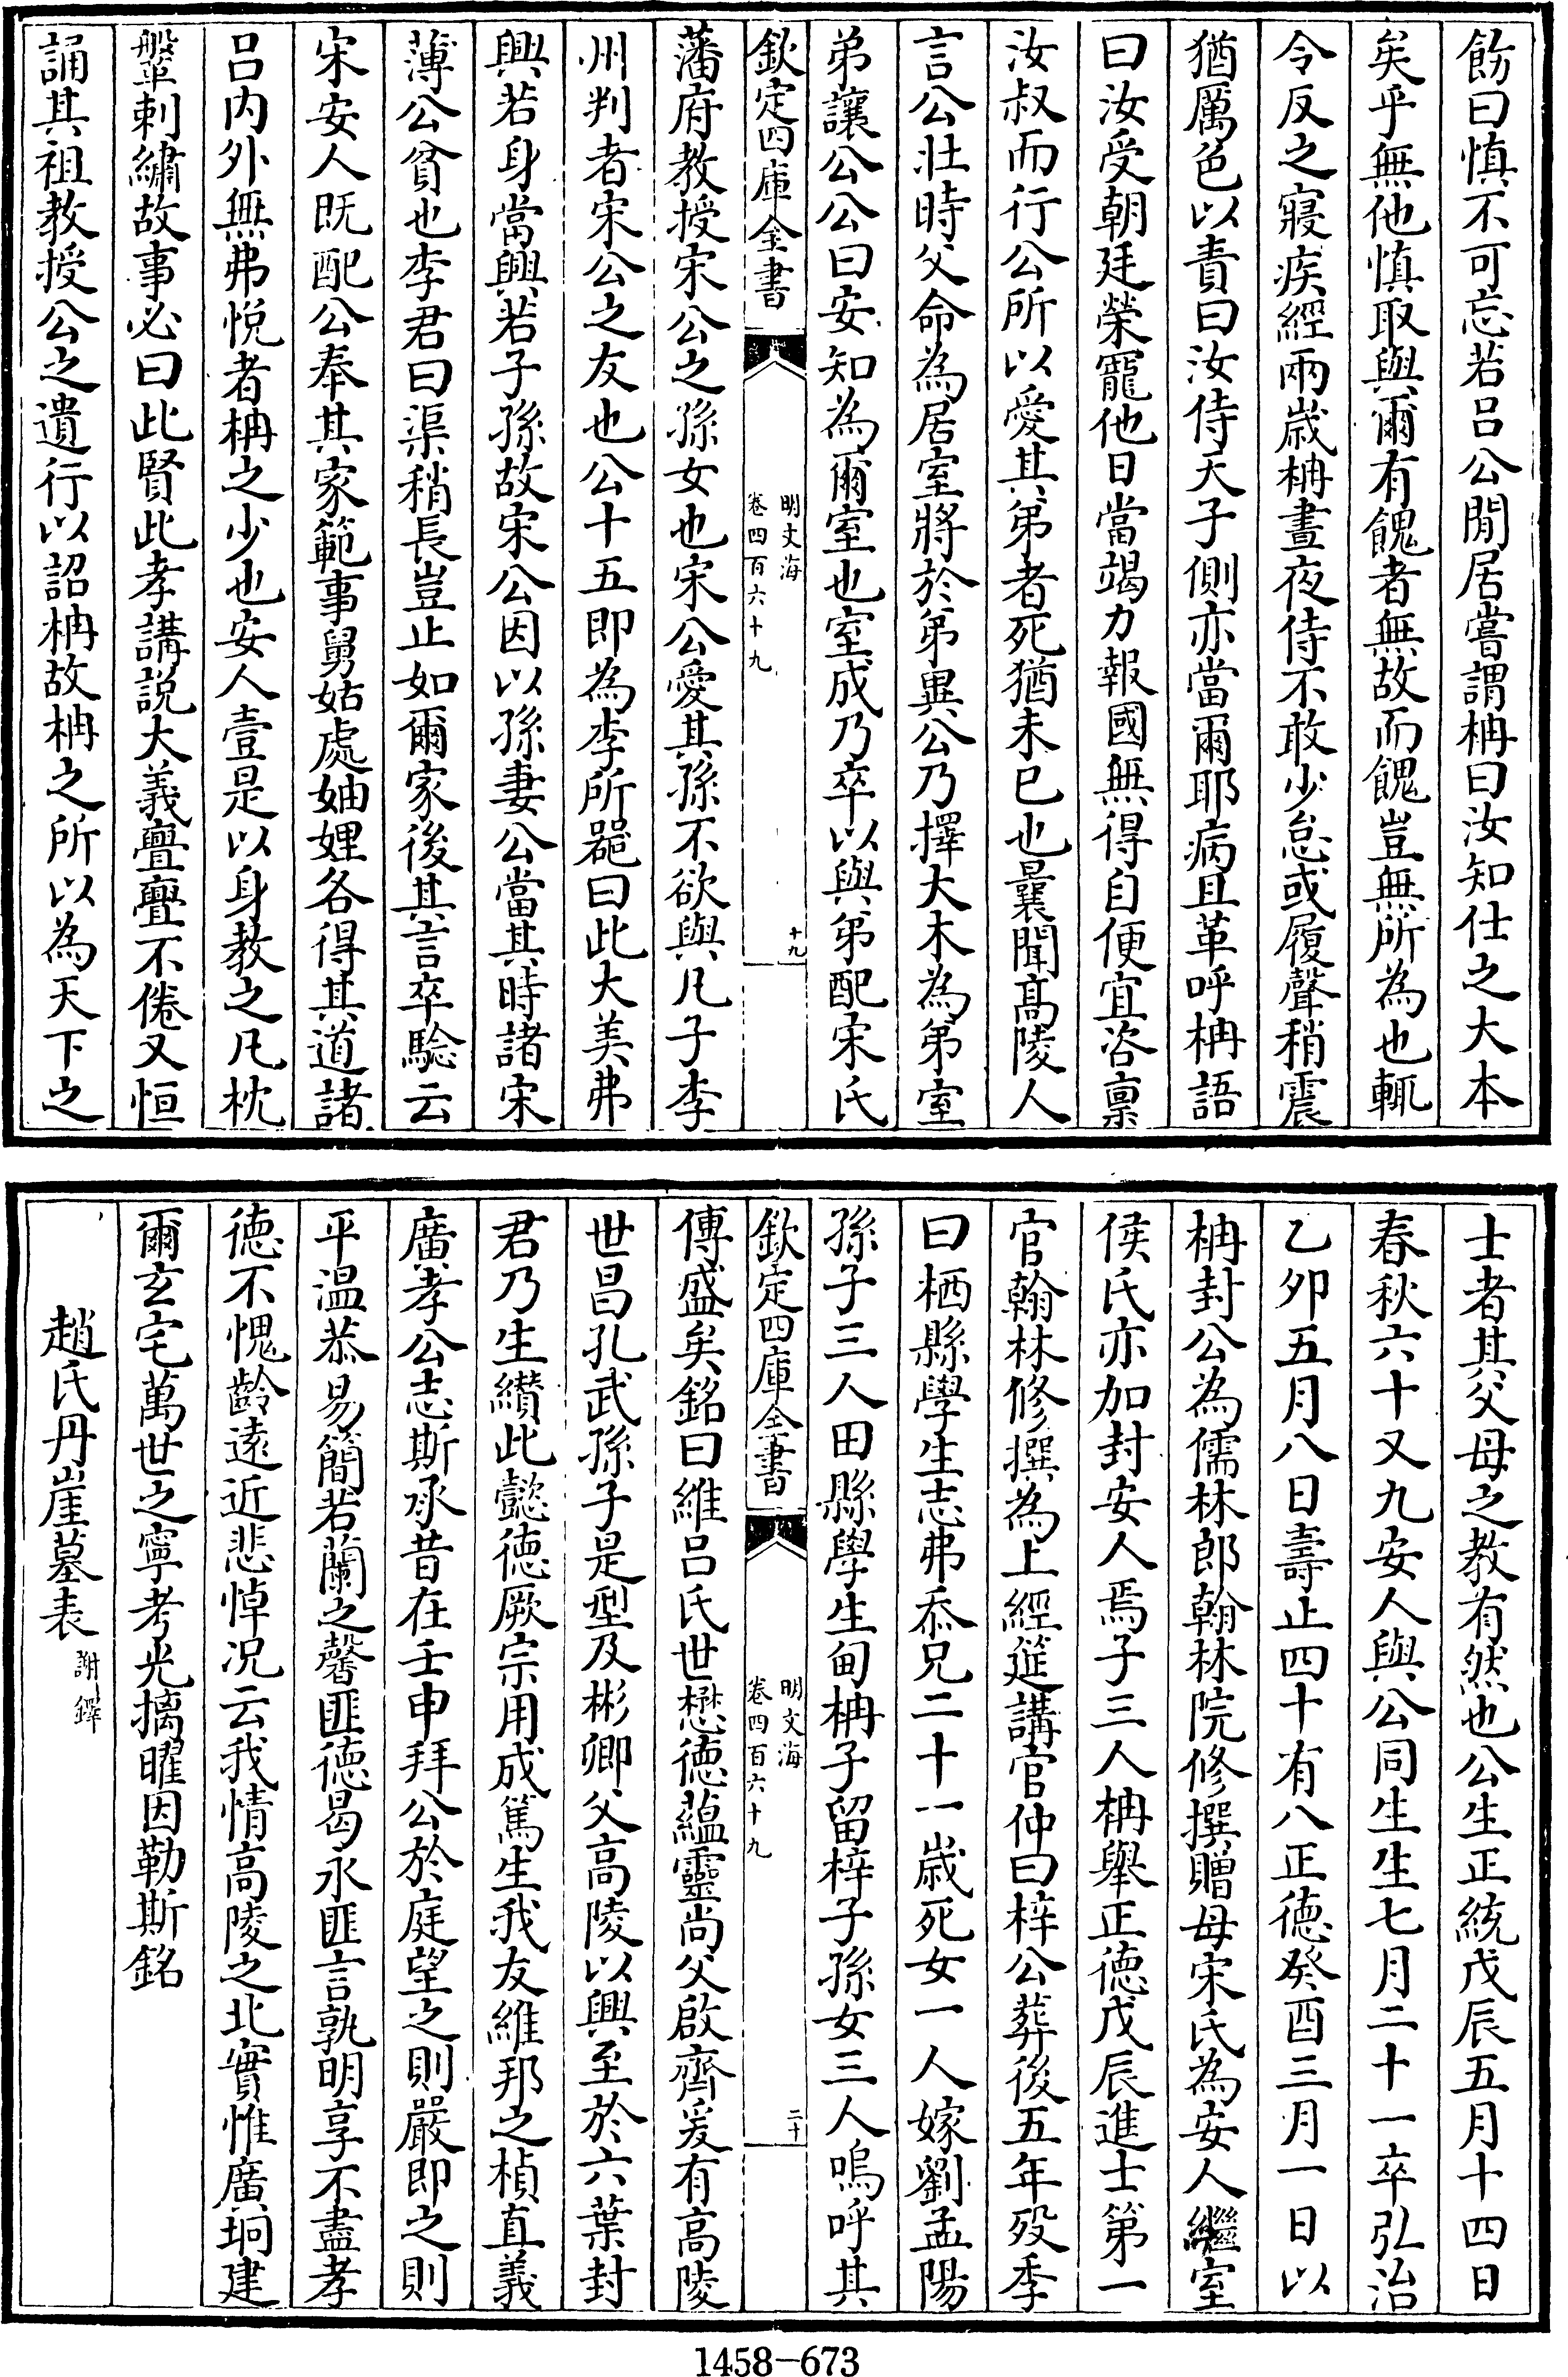 飭曰慎不可忘若吕公閒居嘗謂柟曰汝知仕之大本
矣乎無他慎取與爾有餽者無故而餽豈無所為也輒
令反之寢疾經兩歲柟晝夜侍不敢少怠或履聲稍震
猶厲色以責曰汝侍天子側亦當爾耶病且革呼柟語
曰汝受朝廷榮寵他日當竭力報國無得自便宜咨禀
汝叔而行公所以愛其弟者死猶未已也曩聞髙陵人
言公壯時父命為居室將於弟異公乃擇大木為弟室
弟讓公公曰安知為爾室也室成乃卒以與弟配宋氏
欽定四庫全書
明文海
卷四百六十九
十九
藩府教授宋公之孫女也宋公愛其孫不欲與凡子李
州判者宋公之友也公十五即為李所器曰此大美弗
興若身當興若子孫故宋公因以孫妻公當其時諸宋
薄公貧也李君曰渠稍長豈止如爾家後其言卒驗云
宋安人既配公奉其家範事舅姑處妯娌各得其道諸
吕内外無弗悦者柟之少也安人壹是以身教之凡枕
鞶刺繡故事必曰此賢此孝講説大義亹亹不倦又恒
誦其祖教授公之遺行以詔柟故柟之所以為天下之
士者其父母之教有然也公生正統戊辰五月十四日
春秋六十又九安人與公同生生七月二十一卒弘治
乙夘五月八日壽止四十有八正德癸酉三月一日以
柟封公為儒林郎翰林院修撰贈母宋氏為安人繼室
侯氏亦加封安人焉子三人柟舉正德戊辰進士第一
官翰林修撰為上經筵講官仲曰梓公葬後五年殁季
曰栖縣學生志弗忝兄二十一歲死女一人嫁劉孟陽
孫子三人田縣學生甸柟子留梓子孫女三人嗚呼其
欽定四庫全書
明文海
卷四百六十九
二十
傳盛矣銘曰維吕氏世懋德藴靈尚父啟齊爰有高陵
世昌孔武孫子是型及彬卿父高陵以興至於六葉封
君乃生纘此懿德厥宗用成篤生我友維邦之楨直義
廣孝公志斯承昔在壬申拜公於庭望之則嚴即之則
平温恭易簡若蘭之馨匪德曷永匪言孰明享不盡孝
德不愧齡遠近悲悼况云我情高陵之北實惟廣坰建
爾玄宅萬世之寧考光摛曜因勒斯銘
趙氏丹崖墓表
謝鐸
1458-673